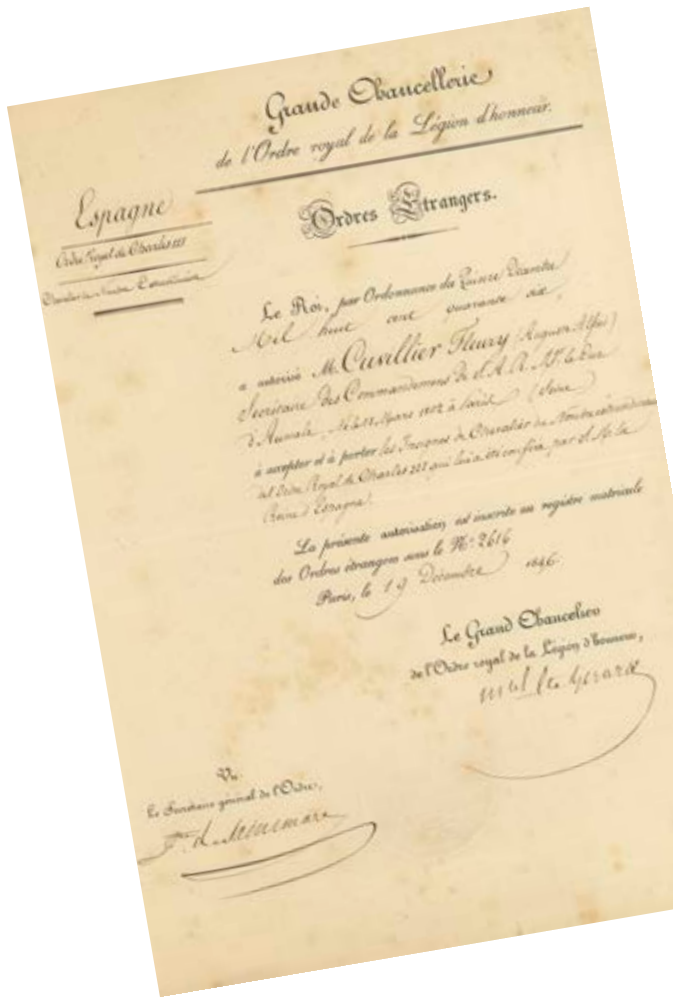 Grande Chancellerie
de l'Ordre royal de la Légion d'honneur.
Espagne
Ordre Royal de Charles III
Chevalier de Nombre Extraordinaire
Ordres Étrangers.
Le Roi, par Ordonnance du Quinze Décembre
Mil huit cent quarante six,
a autorisé M. Cuvillier Fleury (Auguste Alfred)
Secrétaire des Commandemens de S. A. R. Mgr. le Duc
d'Aumale, Né le Mars 1802 à Paris (Seine)
à accepter et à porter les Insignes de Chevalier de Nombre extraordinaire
de l'Ordre Royal de Charles III qui lui a été conféré par S. M. la
Reine d'Espagne.
La présente autorisation est inscrite au registre matricule
des Ordres étrangers sous le No. 2616
Paris, le 19 Décembre 1846
Le Grand Chancelier
de l'Ordre royal de la Légion d'honneur,
Mal Cte Gerard
Vu
Le Secrétaire général de l'Ordre,